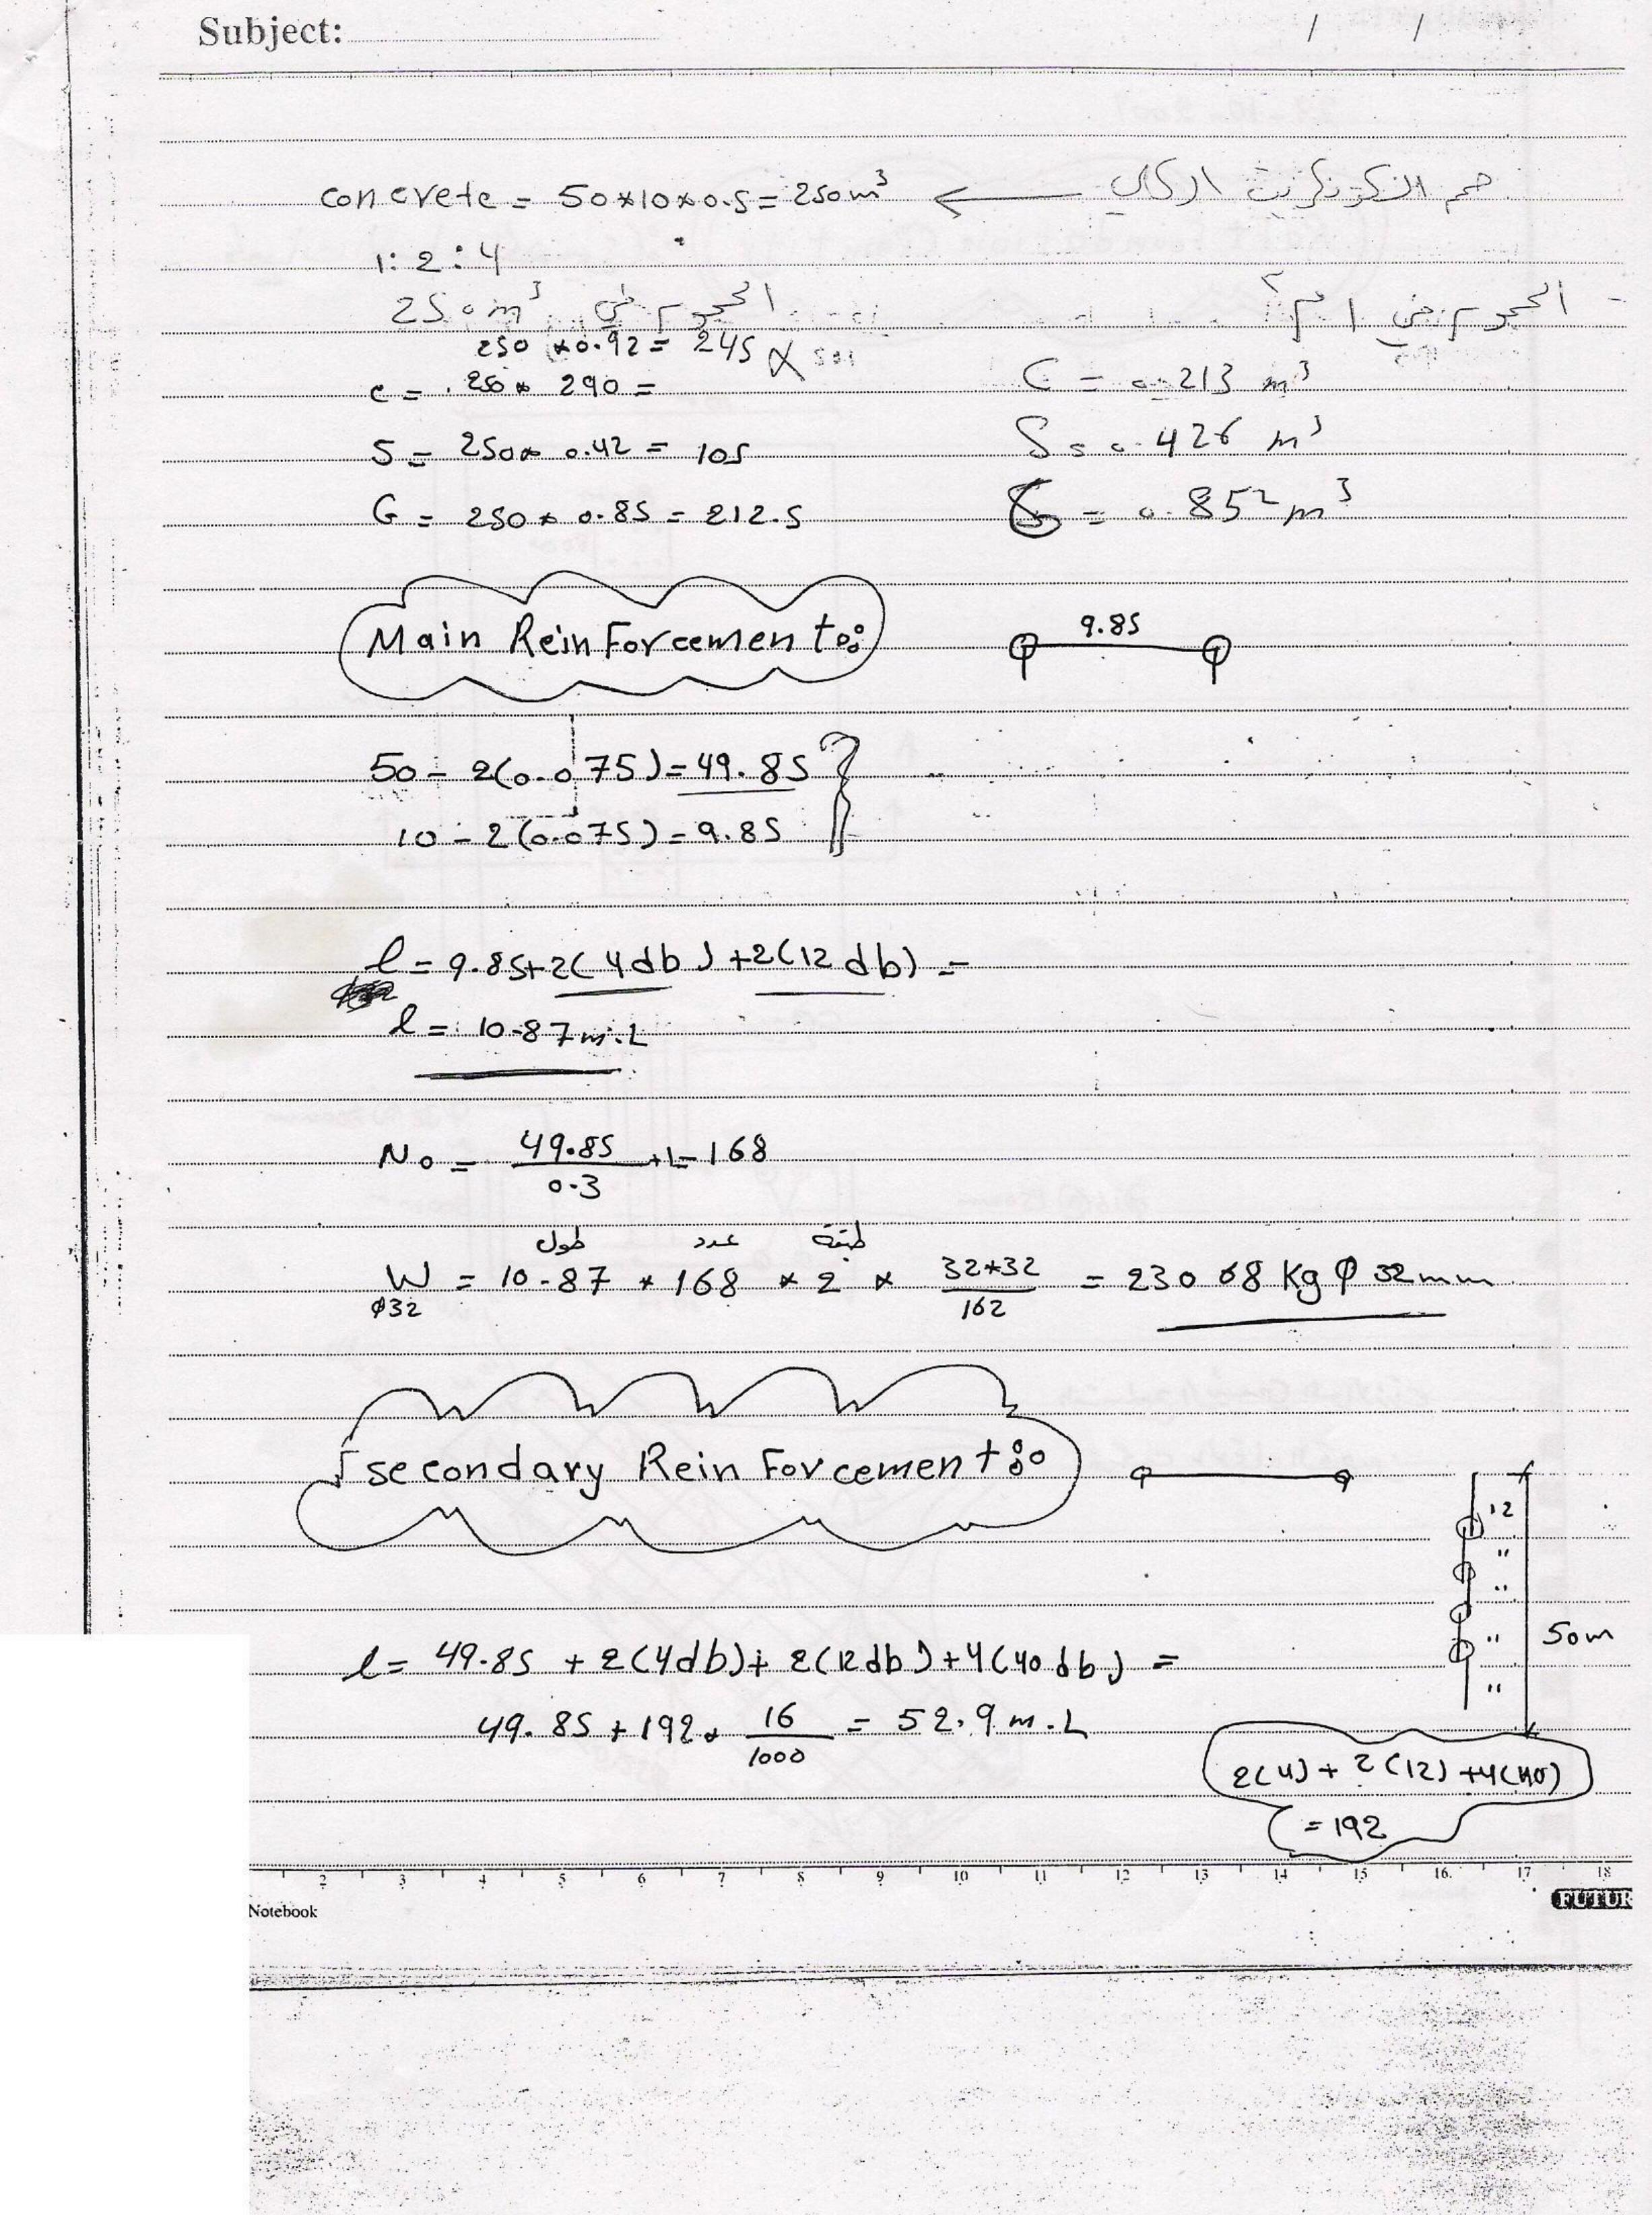 Subject: / /
concrete = 50*10*0.5 = 250m³ ← حجم الكونكريت الركي
1:2:4
الحجوم في 250m³
الحجوم في 1 م³
250 *0.92 = 245
c = .250* 290 =
C = 0.213 m³
S = 250* 0.42 = 105
S = 0.426 m³
G = 250* 0.85 = 212.5
G = 0.852 m³
Main ReinForcement:
9.85
50 - 2(0.075) = 49.85
10 - 2(0.075) = 9.85
l = 9.85+2(4db)+2(12db) =
l = 10.87 m.L
No = 49.85/0.3 +1 = 168
طول عدد طبقة
W ϕ32 = 10.87 * 168 * 2 * 32*32/162 = 23068 Kg ϕ 32mm
secondary ReinForcement:
12
"
"
"
"
50m
l = 49.85 + 2(4db)+ 2(12db)+4(40db) =
49.85+192* 16/1000 = 52.9 m.L
2(4)+2(12)+4(40)
= 192
2 3 4 5 6 7 8 9 10 11 12 13 14 15 16 17 18
Notebook
FUTUR